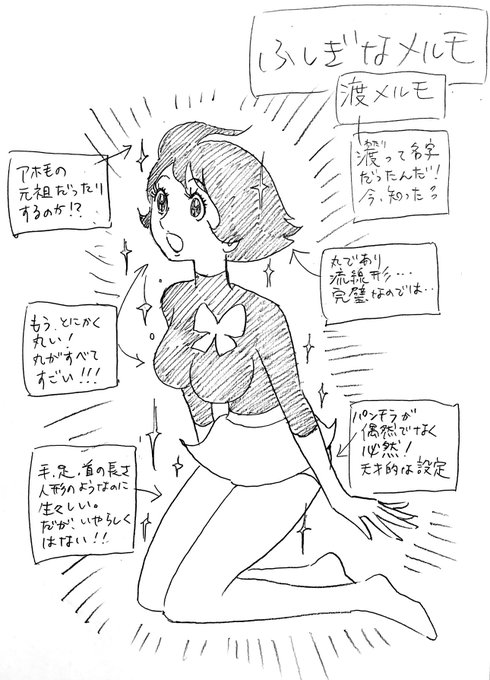 ふしぎなメルモ
渡メルモ
渡って名字
だったんだ!
今、知った
アホ毛の
元祖だったり
するのか!?
丸であり
流線形…
完璧なのでは…
もう、とにかく
丸い!
丸がすべて
すごい!!!
パンチラが
偶然でなく
必然!
天才的な設定
手、足、首の長さ
人形のようなのに
生々しい。
だが、いやらしく
はない!!